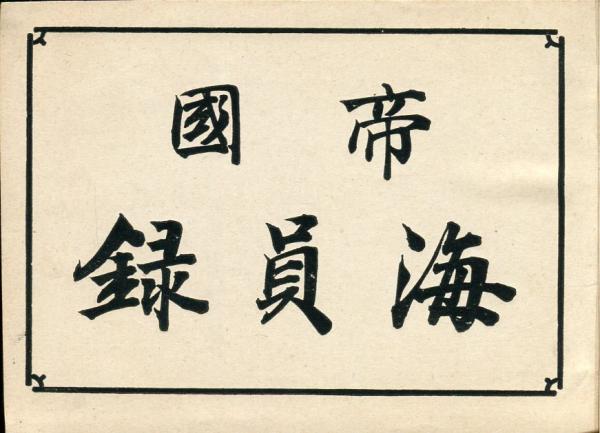 帝國
海員録